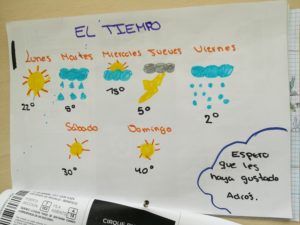 EL TIEMPO
Lunes Martes Miercoles Jueves Viernes
22º 9º 13º 5º 2º
Sábado Domingo
30º 40º
Espero
que les
haya gustado
Adios.
CIRQUE